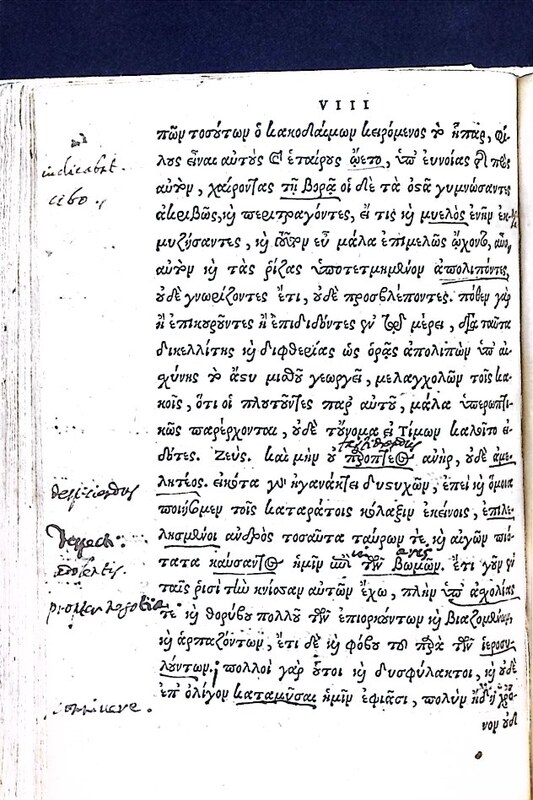 VIII
πῶν τοσούτων ὁ κακοδαίμων κειρόμενος τὸ ἧπαρ, φί-
λους εἶναι αὐτοὺς καὶ ἑταίρους ᾤετο, ὑπ' εὐνοίας τῆς πρὸς
indicabat. αὐτὸν, χαίροντας τῇ βορᾷ οἱ δὲ τὰ ὀστᾶ γυμνώσαντες
cibo. ἀκριβῶς, καὶ περιτραγόντες, εἴ τις καὶ μυελὸς ἐνῆν ἐκ-
μυζήσαντες, καὶ τοῦτον εὖ μάλα ἐπιμελῶς ᾤχοντο, αὖον
αὐτὸν καὶ τὰς ῥίζας ὑποτετμημένον ἀπολιπόντες,
οὐδὲ γνωρίζοντες ἔτι, οὐδὲ προσβλέποντες. πόθεν γὰρ
ἢ ἐπικουροῦντες ἢ ἐπιδιδόντες ἐν τῷ μέρει, διὰ ταῦτα
δικελλίτης καὶ διφθερίας ὡς ὁρᾷς ἀπολιπὼν ὑπ' αἰ-
χύνης τὸ ἄστυ μισθοῦ γεωργεῖ, μελαγχολῶν τοῖς κα-
κοῖς, ὅτι οἱ πλουτοῦντες παρ' αὐτοῦ, μάλα ὑπεροπτι-
κῶς παρέρχονται, οὐδὲ τοὔνομα εἰ Τίμων καλοῖτο εἰ-
δότες. Ζεύς. καὶ μὴν οὐ παροπτέος ἀνὴρ, οὐδὲ ἀμε-
λητέος. εἰκότα γοῦν ἠγανάκτει δυστυχῶν, ἐπεὶ καὶ ὅμοια
ποιήσομεν τοῖς καταράτοις κόλαξιν ἐκείνοις, ἐπιλε-
λησμένοι ἀνδρὸς τοσαῦτα ταύρων τε καὶ αἰγῶν πιό-
τατα καύσαντος ἡμῖν ἐπὶ τῶν βωμῶν. ἔτι γοῦν ἐν
ταῖς ῥισὶ τὴν κνίσαν αὐτῶν ἔχω, πλὴν ὑπ' ἀσχολίας
τε καὶ θορύβου πολλοῦ τῶν ἐπιορκούντων καὶ βιαζομένων,
καὶ ἁρπαζόντων, ἔτι δὲ καὶ φόβου τοῦ παρὰ τῶν ἱεροσυ-
λούντων. πολλοὶ γὰρ οὗτοι καὶ δυσφύλακτοι, καὶ οὐδὲ
ἐπ' ὀλίγον καταμύσαι ἡμῖν ἐφιᾶσι, πολὺν ἤδη χρό-
νον οὐδὲ